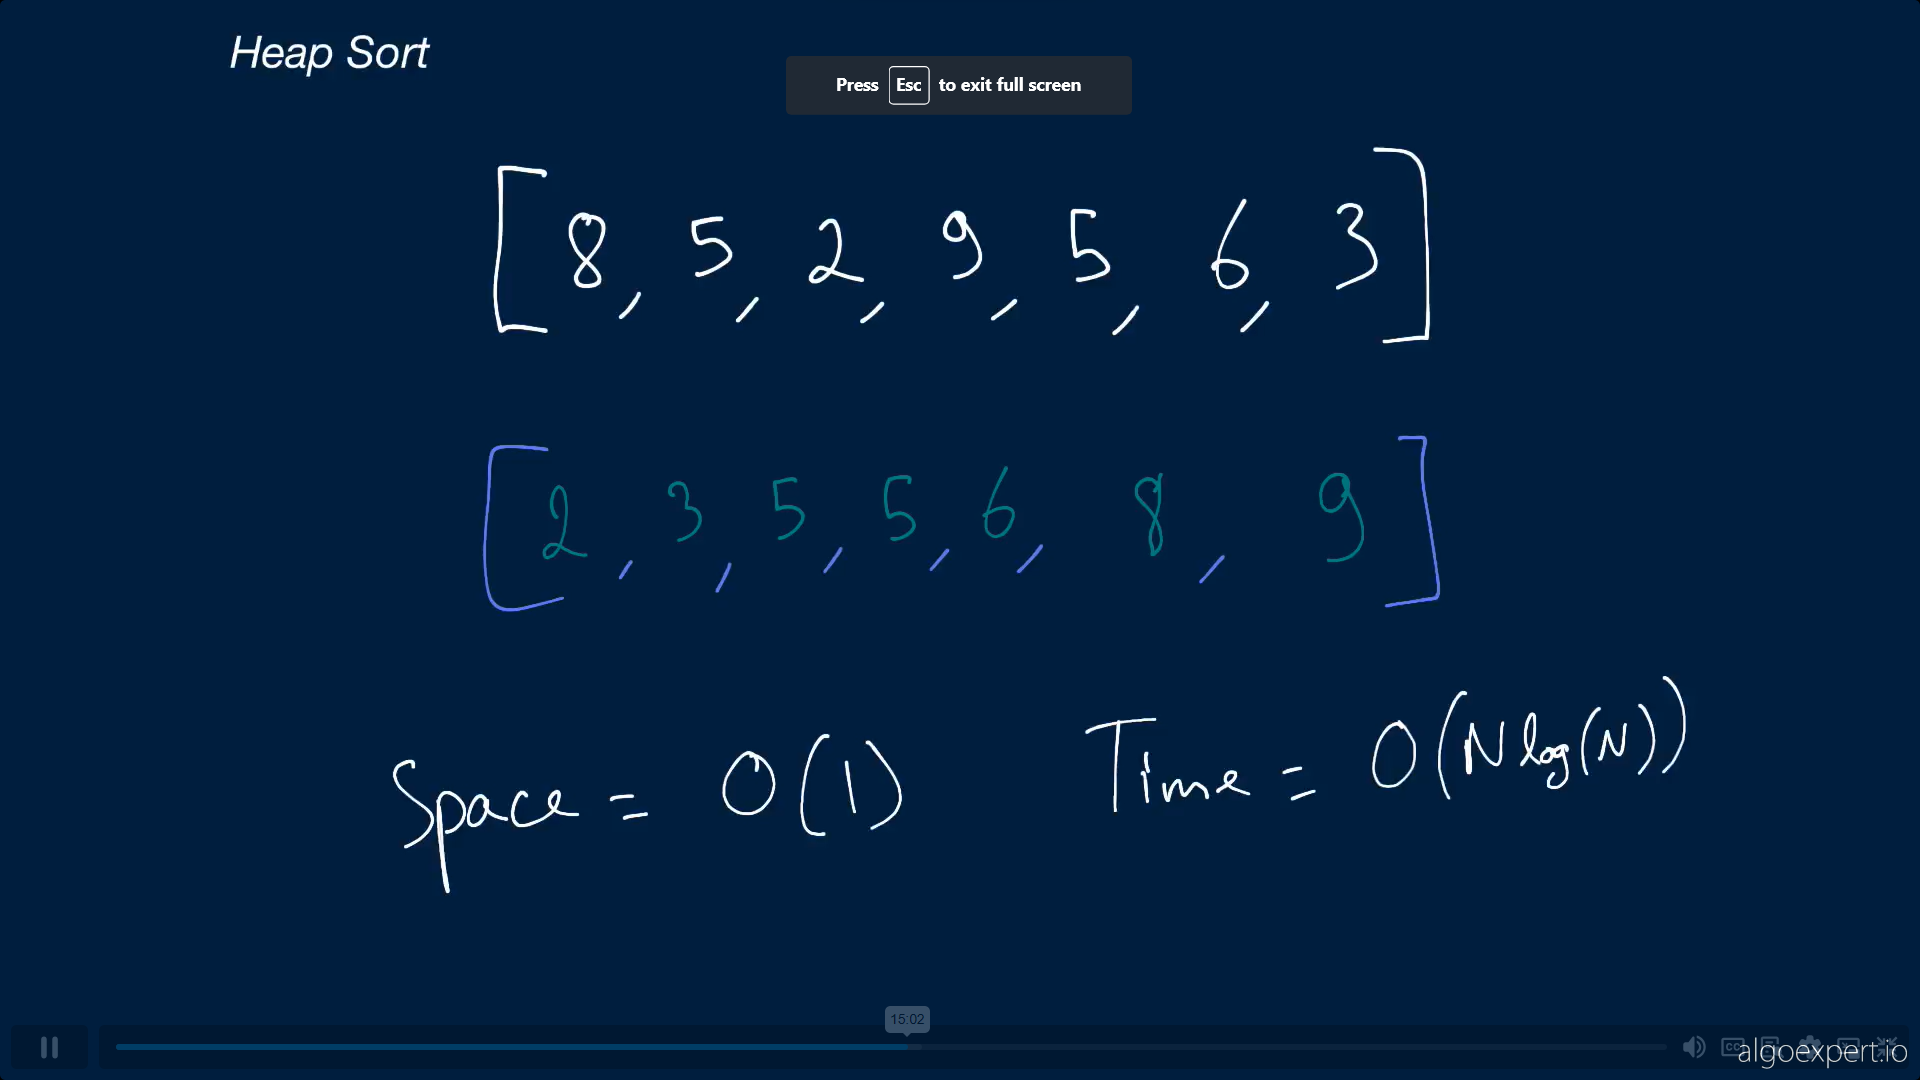 Heap Sort
Press Esc to exit full screen
[8, 5, 2, 9, 5, 6, 3]
[2, 3, 5, 5, 6, 8, 9]
Space = O(1) Time = O(N log(N))
15:02
CC
algoexpert.io